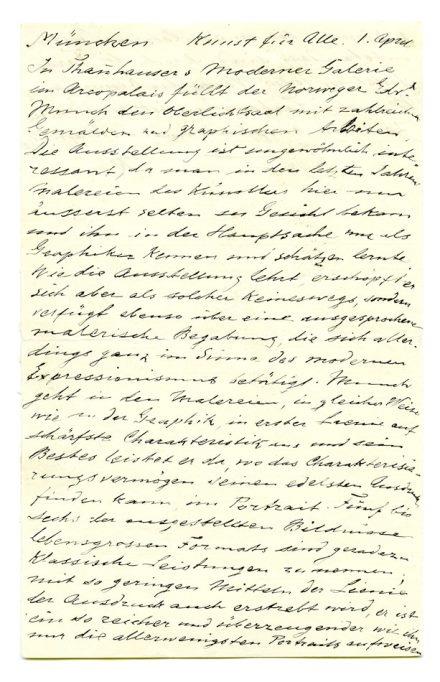 München Kunst für Alle. 1. April
In Thannhausers Moderner Galerie
im Arcopalais füllt der Norweger Edv.
Munch den Oberlichtsaal mit zahlreichen
Gemälden und graphischen Arbeiten
Die Ausstellung ist ungewöhnlich inte-
ressant, da man in den letzten Jahren
Malereien des Künstlers hier nur
äusserst selten zu Gesicht bekam
und ihn in der Hauptsache nur als
Graphiker kennen und schätzen lernte.
Wie die Ausstellung lehrt, erschöpft er
sich aber als solcher keineswegs, sondern
verfügt ebenso über eine ausgesprochene
malerische Begabung, die sich aller-
dings ganz im Sinne des modernen
Expressionismus betätigt. Munch
geht in den Malereien, in gleicher Weise
wie in der Graphik in erster Linie auf
schärfste Charakteristik aus und sein
Bestes leistet er da, wo das Charakterisie-
rungsvermögen seinen edelsten Ausdruck
finden kann, im Portrait. Fünf bis
sechs der ausgestellten Bildnisse
lebensgrossen Formats sind geradezu
klassische Leistungen zu nennen,
mit so geringen Mitteln der Linie
der Ausdruck auch erstrebt wird, er ist
ein so reicher und überzeugender wie ihn
nur die allerwenigsten Portraits aufweisen